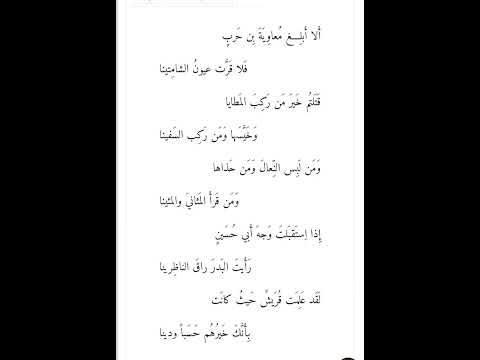 أَلا أَبلِـــغ مُعاوِيَةَ بِن حَربٍ
فَلا قَرَّت عيونُ الشامِتينا
قَتَلتُم خَيرَ مَن رَكِبَ المَطايا
وَخَيَّسَها وَمَن رَكِب السَفينا
وَمَن لَبِس النِّعالَ وَمَن حَذاها
وَمَن قَرأَ المَثانِيَ والمئينا
إِذا اِستَقبَلتَ وَجهَ أَبي حُسَينٍ
رَأَيتَ البَدرَ راقَ الناظِرينا
لَقَد عَلِمَت قُرَيشٌ حَيثُ كانَت
بِأَنَّكَ خَيرُهُم حَسَباً وَدِينا